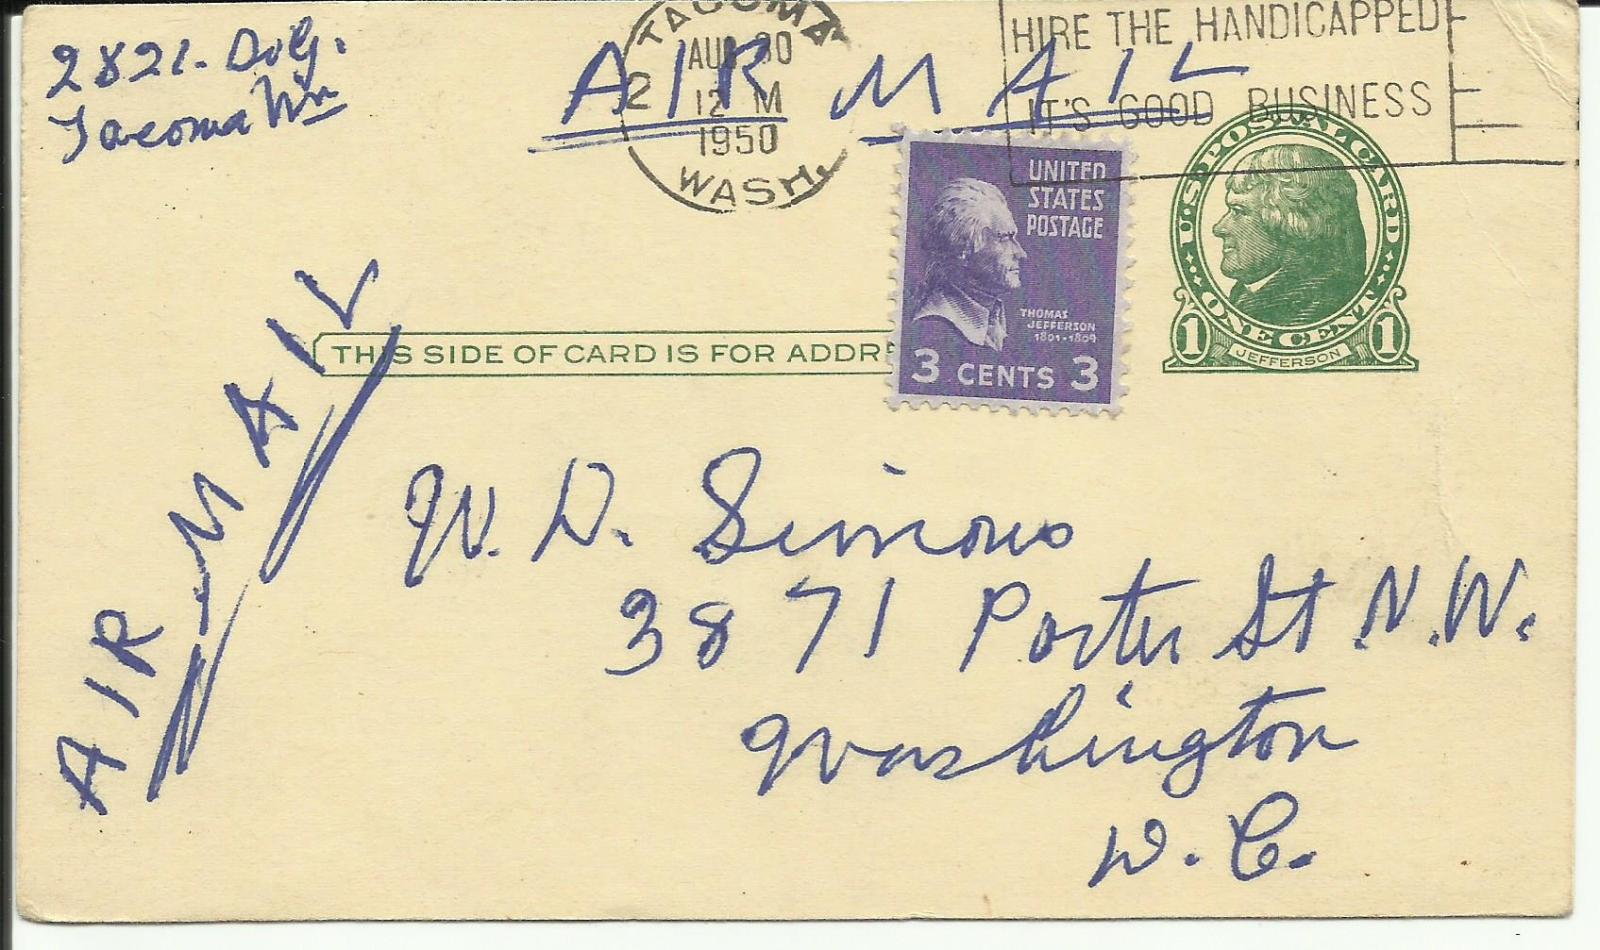 2821. Dolg.
Tacoma Wn
TACOMA
AUG 30
12 M
1950
WASH.
2
HIRE THE HANDICAPPED
IT'S GOOD BUSINESS
AIR MAIL
UNITED
STATES
POSTAGE
THOMAS
JEFFERSON
1801-1809
3 CENTS 3
U.S. POSTAL CARD
ONE CENT
1 JEFFERSON 1
THIS SIDE OF CARD IS FOR ADDRE
AIR MAIL
W. D. Simons
3871 Porter St N.W.
Washington
D.C.